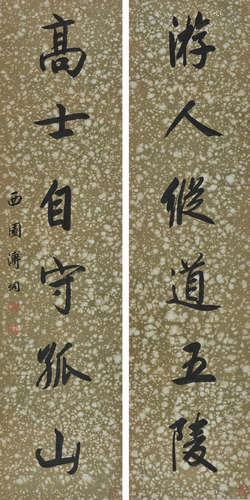 游人縱道五陵
高士自守孤山
西園溥侗